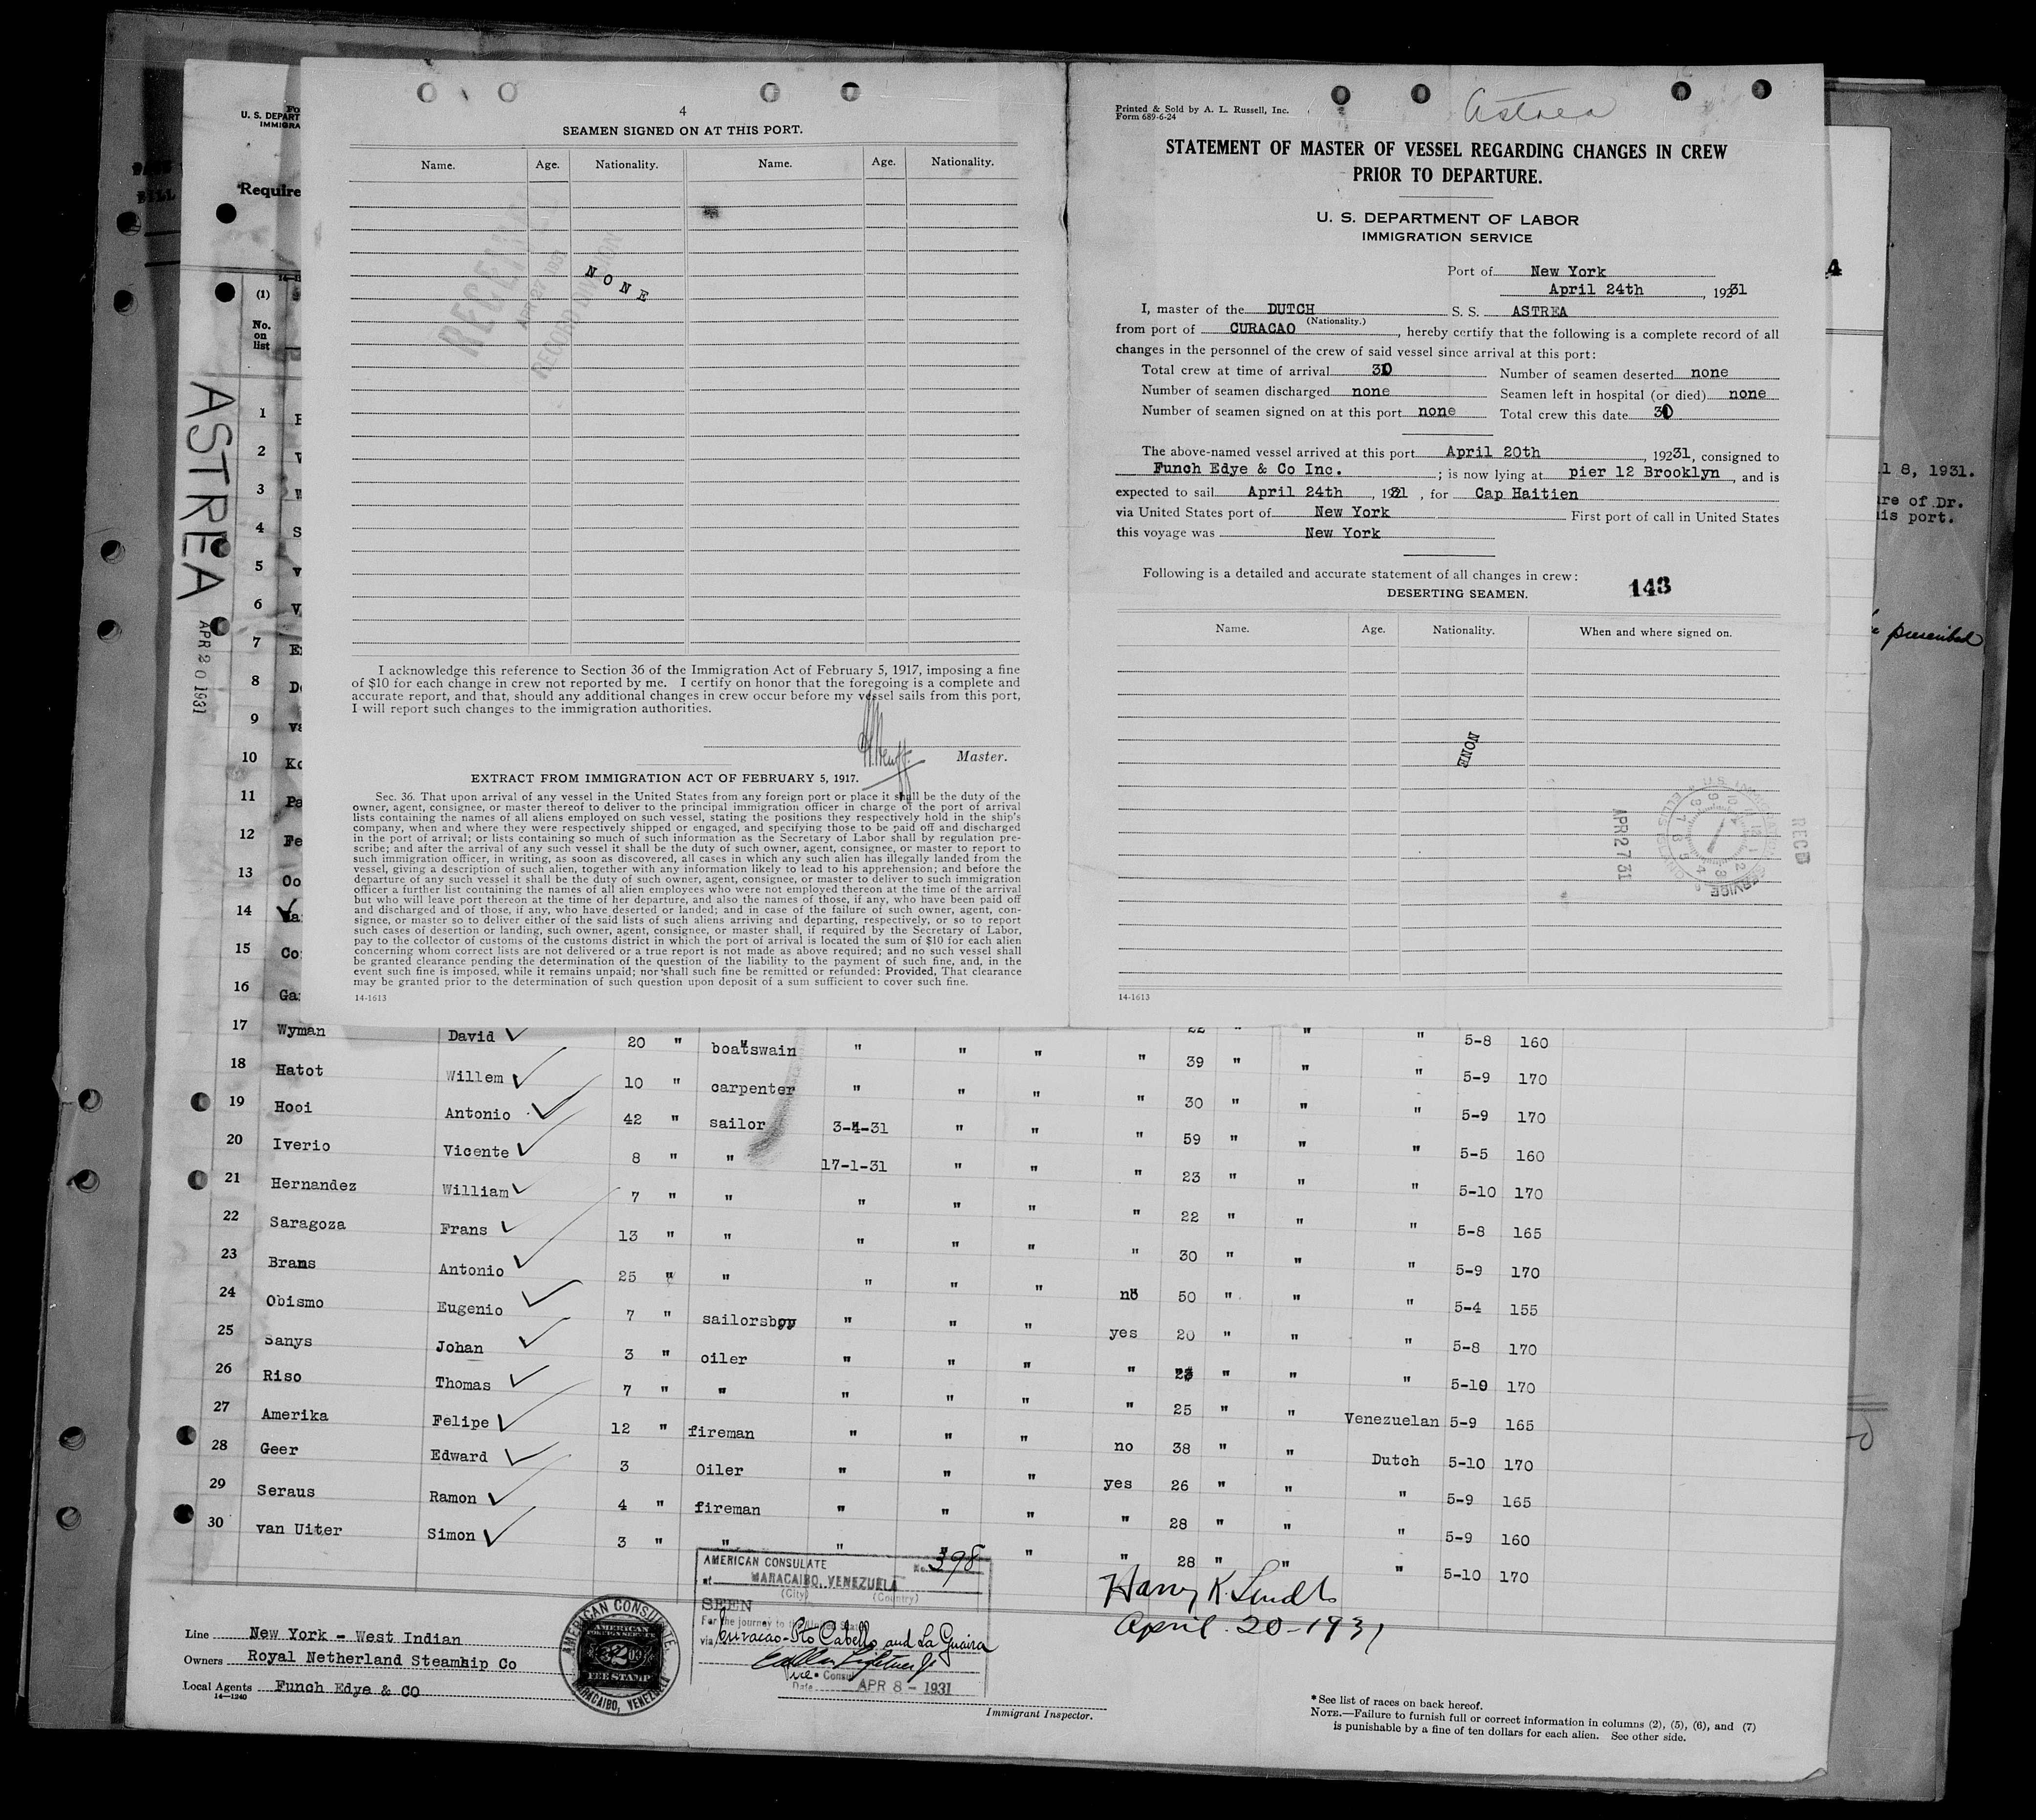 4
SEAMEN SIGNED ON AT THIS PORT.
Name. Age. Nationality. Name. Age. Nationality.
NONE
RECEIVED
APR 27 1931
RECORD DIVISION
I acknowledge this reference to Section 36 of the Immigration Act of February 5, 1917, imposing a fine
of $10 for each change in crew not reported by me. I certify on honor that the foregoing is a complete and
accurate report, and that, should any additional changes in crew occur before my vessel sails from this port,
I will report such changes to the immigration authorities.
Master.
EXTRACT FROM IMMIGRATION ACT OF FEBRUARY 5, 1917.
Sec. 36. That upon arrival of any vessel in the United States from any foreign port or place it shall be the duty of the
owner, agent, consignee, or master thereof to deliver to the principal immigration officer in charge of the port of arrival
lists containing the names of all aliens employed on such vessel, stating the positions they respectively hold in the ship's
company, when and where they were respectively shipped or engaged, and specifying those to be paid off and discharged
in the port of arrival; or lists containing so much of such information as the Secretary of Labor shall by regulation pre-
scribe; and after the arrival of any such vessel it shall be the duty of such owner, agent, consignee, or master to report to
such immigration officer, in writing, as soon as discovered, all cases in which any such alien has illegally landed from the
vessel, giving a description of such alien, together with any information likely to lead to his apprehension; and before the
departure of any such vessel it shall be the duty of such owner, agent, consignee, or master to deliver to such immigration
officer a further list containing the names of all alien employees who were not employed thereon at the time of the arrival
but who will leave port thereon at the time of her departure, and also the names of those, if any, who have been paid off
and discharged and of those, if any, who have deserted or landed; and in case of the failure of such owner, agent, con-
signee, or master so to deliver either of the said lists of such aliens arriving and departing, respectively, or so to report
such cases of desertion or landing, such owner, agent, consignee, or master shall, if required by the Secretary of Labor,
pay to the collector of customs of the customs district in which the port of arrival is located the sum of $10 for each alien
concerning whom correct lists are not delivered or a true report is not made as above required; and no such vessel shall
be granted clearance pending the determination of the question of the liability to the payment of such fine, and, in the
event such fine is imposed, while it remains unpaid; nor shall such fine be remitted or refunded: Provided, That clearance
may be granted prior to the determination of such question upon deposit of a sum sufficient to cover such fine.
14-1613
Printed & Sold by A. L. Russell, Inc.
Form 689-6-24
Astrea
STATEMENT OF MASTER OF VESSEL REGARDING CHANGES IN CREW
PRIOR TO DEPARTURE.
U. S. DEPARTMENT OF LABOR
IMMIGRATION SERVICE
Port of New York
April 24th, 19231
I, master of the DUTCH S. S. ASTREA
(Nationality.)
from port of CURACAO, hereby certify that the following is a complete record of all
changes in the personnel of the crew of said vessel since arrival at this port:
Total crew at time of arrival 30 Number of seamen deserted none
Number of seamen discharged none Seamen left in hospital (or died) none
Number of seamen signed on at this port none Total crew this date 30
The above-named vessel arrived at this port April 20th, 19231, consigned to
Funch Edye & Co Inc.; is now lying at pier 12 Brooklyn, and is
expected to sail April 24th, 1931, for Cap Haitien
via United States port of New York First port of call in United States
this voyage was New York
Following is a detailed and accurate statement of all changes in crew:
143
DESERTING SEAMEN.
Name. Age. Nationality. When and where signed on.
NONE
REC'D
APR 27 31
14-1613
U. S. DEPART
IMMIGRA
Require
(1)
No.
on
list
ASTREA
APR 20 1931
1
2
3
4 S
5 v
6 V
7 E
8 D
9 va
10 Ko
11 Pa
12 Fe
13 Oo
14
15 Co
16 Ga
17 Wyman David 20 " boatswain " " " " 39 " " " 5-8 160
18 Hatot Willem 10 " carpenter " " " " 30 " " " 5-9 170
19 Hooi Antonio 42 " sailor 3-4-31 " " " 59 " " " 5-9 170
20 Iverio Vicente 8 " " 17-1-31 " " " 23 " " " 5-5 160
21 Hernandez William 7 " " " " " " 22 " " " 5-10 170
22 Saragoza Frans 13 " " " " " " 30 " " " 5-8 165
23 Brans Antonio 25 " " " " " no 50 " " " 5-9 170
24 Obismo Eugenio 7 " sailorsboy " " " yes 20 " " " 5-4 155
25 Sanys Johan 3 " oiler " " " " 23 " " " 5-8 170
26 Riso Thomas 7 " " " " " " 25 " " " 5-10 170
27 Amerika Felipe 12 " fireman " " " no 38 " " Venezuelan 5-9 165
28 Geer Edward 3 Oiler " " " yes 26 " " Dutch 5-10 170
29 Seraus Ramon 4 " fireman " " " " 28 " " " 5-9 165
30 van Uiter Simon 3 " " " " " " 28 " " " 5-9 160
5-10 170
AMERICAN CONSULATE No. 398
at MARACAIBO, VENEZUELA
(City) (Country)
SEEN
For the journey to the United States
via Curacao - Pto Cabello and La Guaira
Vice Consul
Date APR 8 - 1931
AMERICAN CONSULATE
AMERICAN FOREIGN SERVICE
FEE STAMP
MARACAIBO, VENEZUELA
Harry K. Lindt
April 20-1931
Line New York - West Indian
Owners Royal Netherland Steamship Co
Local Agents Funch Edye & CO
14-1240
Immigrant Inspector.
*See list of races on back hereof.
NOTE.—Failure to furnish full or correct information in columns (2), (5), (6), and (7)
is punishable by a fine of ten dollars for each alien. See other side.
l 8, 1931.
re of Dr.
is port.